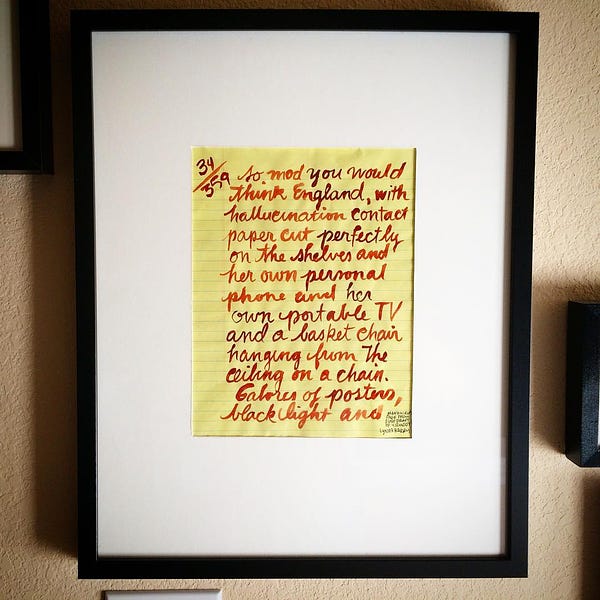 34/359
so mod you would
think England, with
hallucination contact
paper cut perfectly
on the shelves and
her own personal
phone and her
own portable TV
and a basket chair
hanging from The
ceiling on a chain.
Galores of posters,
black light and